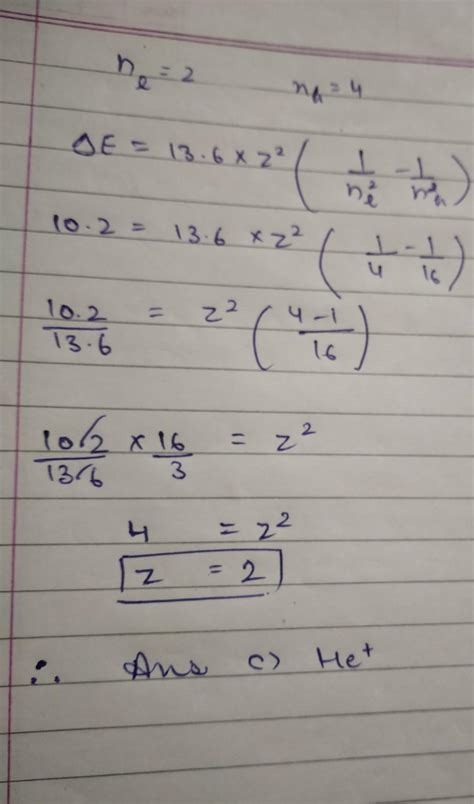 n_l = 2    n_h = 4
ΔE = 13.6 × z² ( 1/n_l² - 1/n_h² )
10.2 = 13.6 × z² ( 1/4 - 1/16 )
10.2/13.6 = z² ( 4-1/16 )
10.2/13.6 × 16/3 = z²
4 = z²
z = 2
∴ Ans c) He⁺